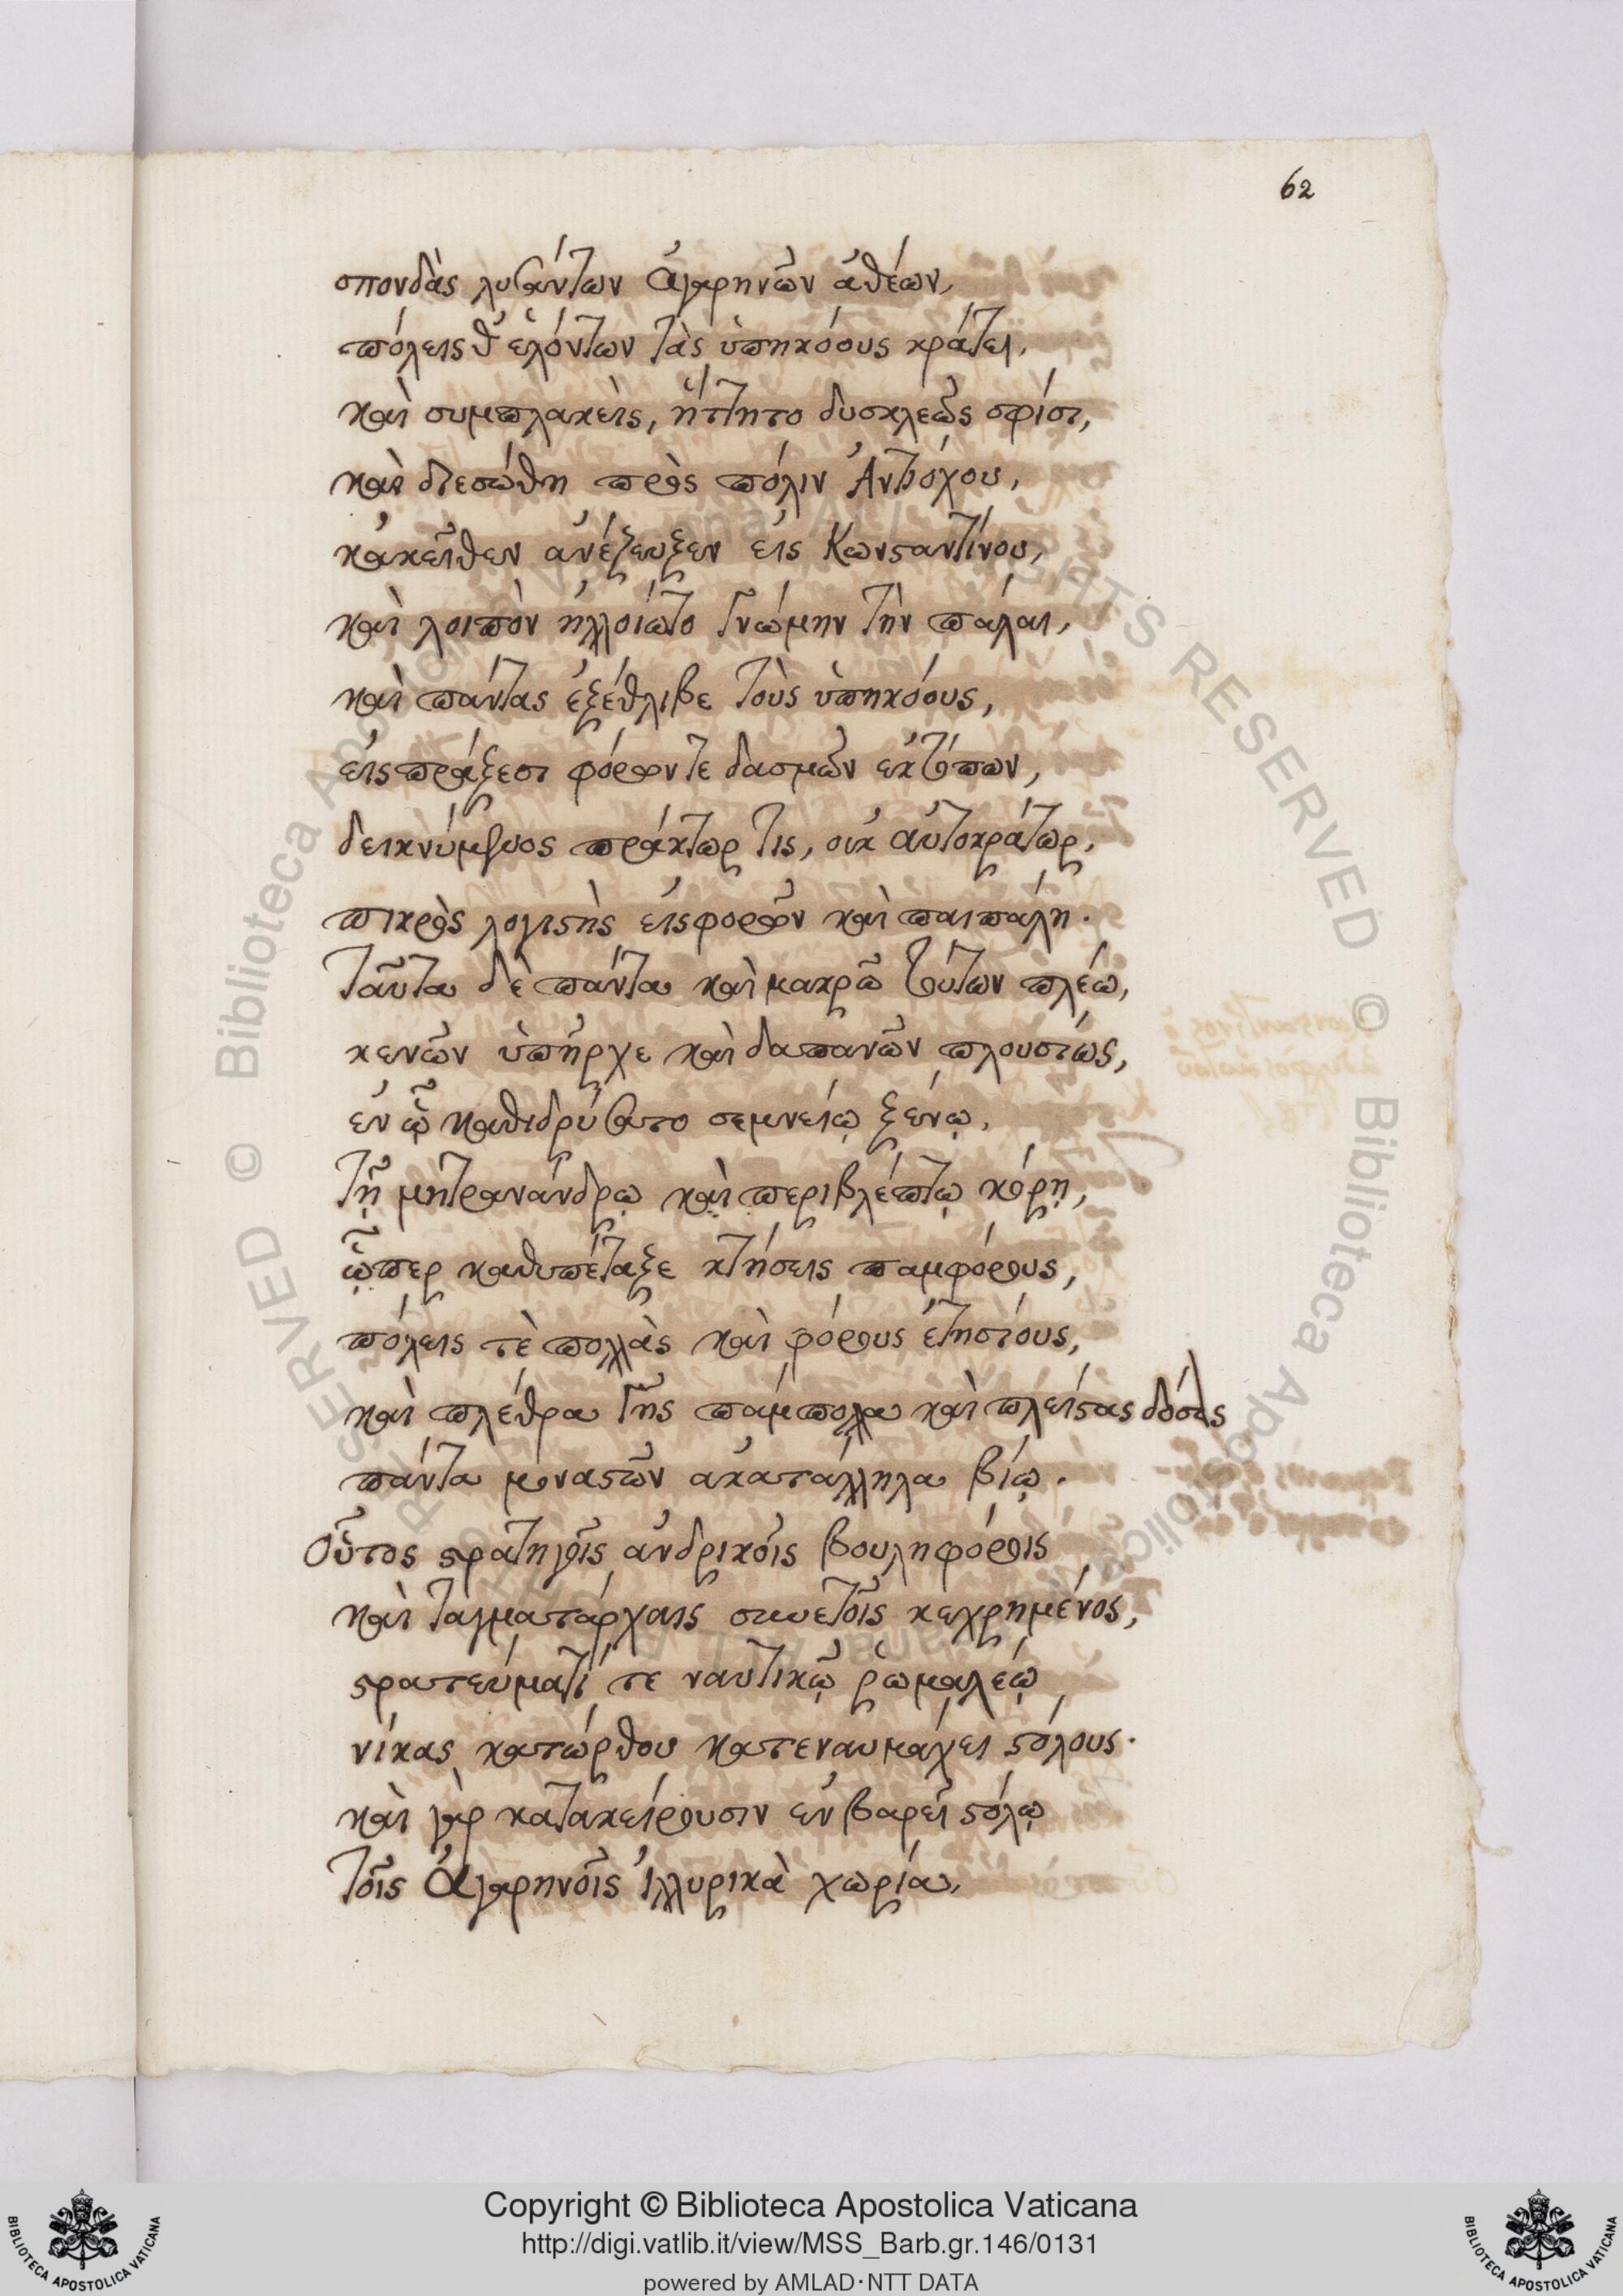 62
σπονδὰς λυσάντων Ἀγαρηνῶν ἀθέων,
πόλεις θ' ἑλόντων τὰς ὑπηκόους κράτει,
καὶ συμπλακεὶς, ἥττητο δυσκλεῶς σφίσι,
καὶ διεσώθη πρὸς πόλιν Ἀντιόχου,
κἀκεῖθεν ἀνέζευξεν εἰς Κωνσαντίνου,
καὶ λοιπὸν ἠλλοίωτο γνώμην τὴν πάλαι,
καὶ πάντας ἐξέθλιβε τοὺς ὑπηκόους,
εἰςπράξεσι φόρων τε δασμῶν ἐκτόπων,
δεικνύμενος πράκτωρ τις, οὐκ αὐτοκράτωρ,
πικρὸς λογιστὴς εἰσφορῶν καὶ παιπάλη.
Ταῦτα δὲ πάντα καὶ μακρῶ τούτων πλέω,
κενῶν ὑπῆρχε καὶ δαπανῶν πλουσίως,
ἐν ᾧ καθιδρύσατο σεμνείῳ ξένῳ,
τῇ μητρανάνδρῳ καὶ περιβλέπτῳ κόρῃ,
ᾧπερ καθυπέταξε κτήσεις παμφόρους,
πόλεις τὲ πολλὰς καὶ φόρους ἐτησίους,
καὶ πλέθρα γῆς πάμπολλα καὶ πλείστας δόσεις
πάντα μοναστῶν ἀκατάλληλα βίῳ.
Οὗτος στρατηγοῖς ἀνδρικοῖς βουληφόροις
καὶ ταγματάρχαις συνετοῖς κεχρημένος,
στρατεύματί τε ναυτικῷ ῥωμαλέῳ
νίκας κατώρθου κατεναυμάχει στόλους.
καὶ γὰρ κατακείρουσιν ἐν βαρεῖ στόλῳ
τοῖς Ἀγαρηνοῖς Ἰλλυρικὰ χωρία,
Copyright © Biblioteca Apostolica Vaticana
http://digi.vatlib.it/view/MSS_Barb.gr.146/0131
powered by AMLAD·NTT DATA